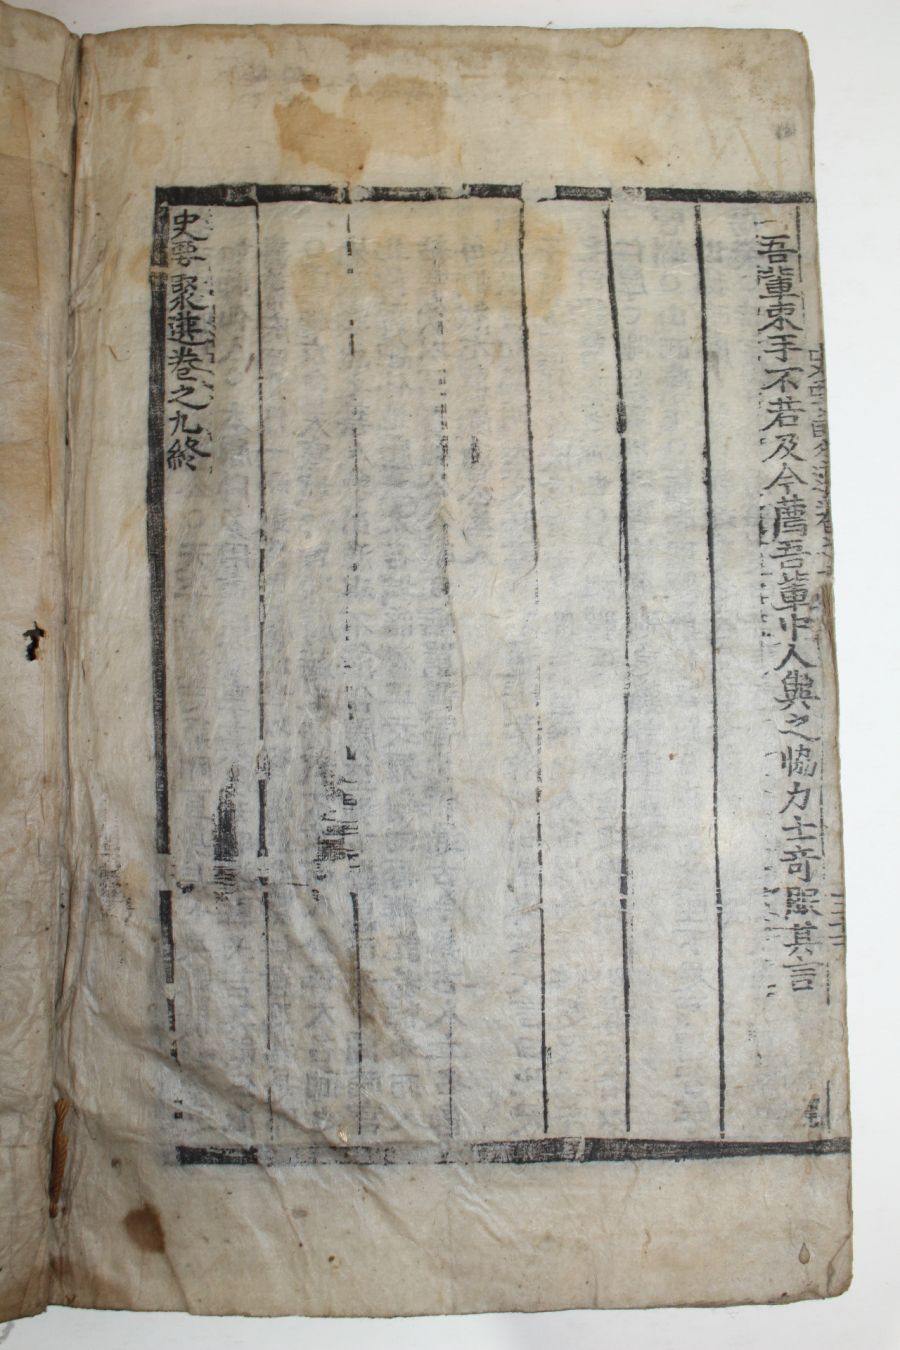 吾輩束手不若及今薦吾輩中人與之恊力士竒然其言
史要聚選卷之九終